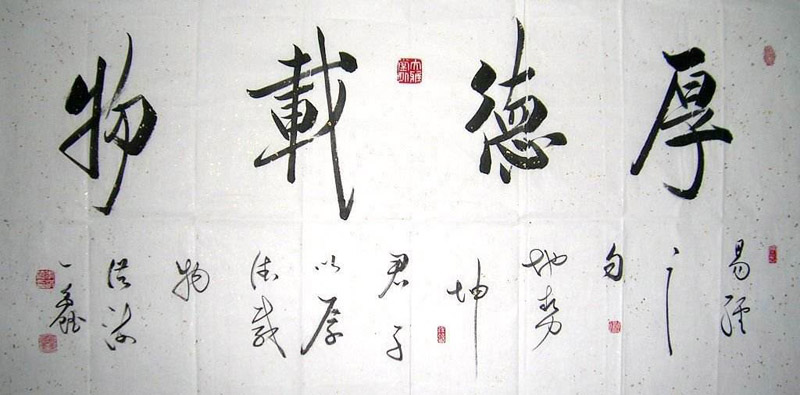 厚德載物
易經
之
句
地勢
坤
君子
以厚
德載
物
洪海
一鑫